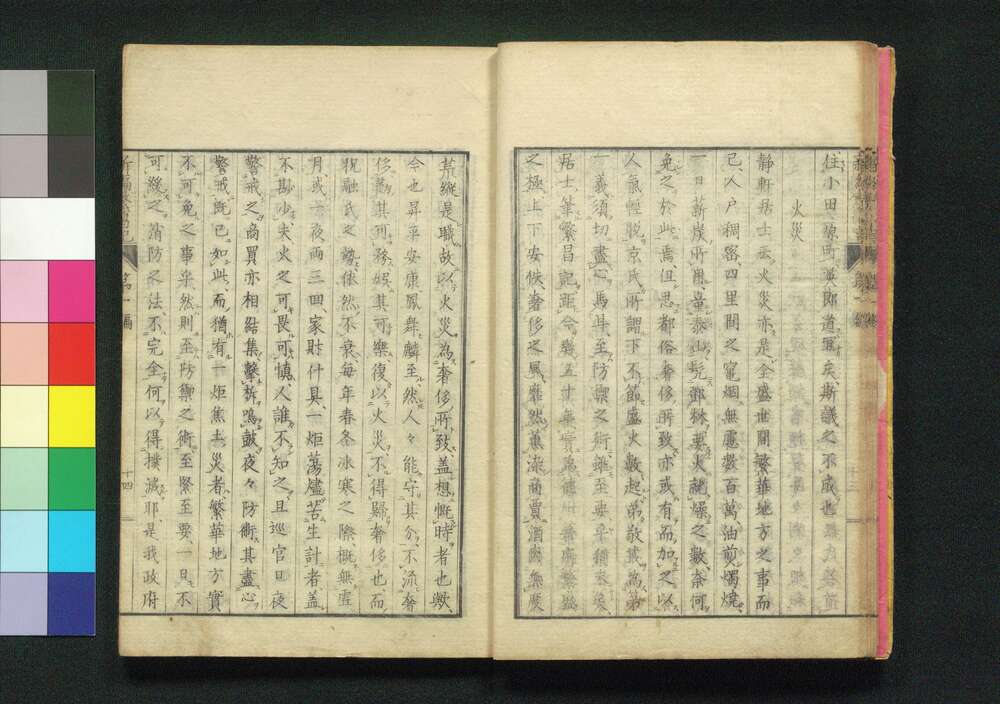 住小田原町漢郎道宜矣斯議之不成也
火災
静軒居士云火災亦是全盛世間繁華地方之事而
已人戸稠密四里間之竃烟無慮数百萬油煎燭燒
一日薪炭所用童泰山髠鄧林要火就燥之数奈何
免之於此焉但思都俗奢侈所致亦或有而加之以
人氣輕脱京氏所謂下不節盛火数起弟敬戒為第
一義須切盡心焉
居士筆繁昌記距今
之極上下安佚奢侈之風靡然薫染商賈酒色無度
荒縱是職故以火災為奢侈所致盖想慨時者也歟
今也昇平安康鳳舞麟至然人々能守其分不流奢
侈務其可務娯其可樂復以火災不得驕奢侈也而
祝融氏之勢依然不衰毎年春冬冰寒之際概無虚
月或一夜両三回家財什具一炬蕩燼苦生計者盖
不尠少失火之可畏可慎人誰不知之且巡官日夜
警戒之商買亦相結集擊柝鳴鼓夜々防衛其盡心
警戒既已如此而猶有一炬焦土災者繁華地方實
不可免之事乎然則至防禦之術至緊至要一日不
可緩之消防之法不完全何以得撲滅耶是我政府
十四